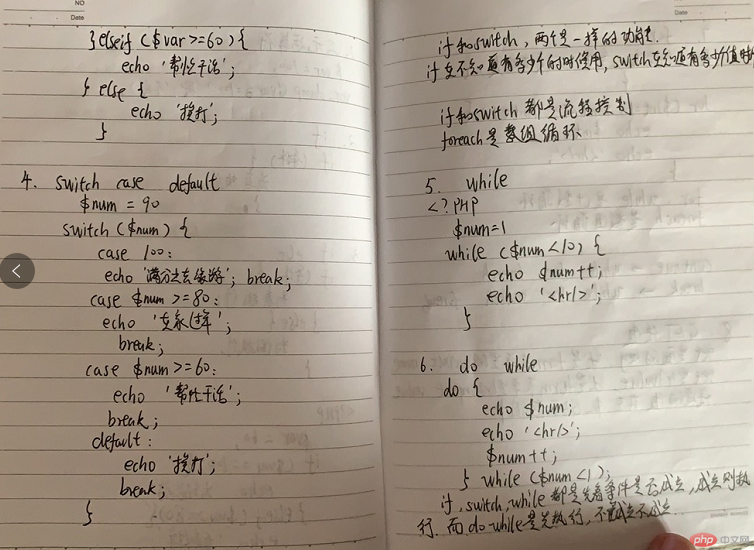 NO
Date
}elseif ($var>=60){
echo '帮忙干活';
} else {
echo '挨打';
}
4. switch case default
$num = 90
switch ($num) {
case 100:
echo '满分去旅游'; break;
case $num >=80:
echo '在家过年';
break;
case $num>=60:
echo '帮忙干活';
break;
default:
echo '挨打';
break;
}
Date
if和switch,两个是一样的功能.
if在不知道有多少个的时使用,switch在知道有多少值时
if和switch都是流程控制
foreach是数组循环
5. while
<?PHP
$num=1
while ($num<10) {
echo $num++;
echo '<hr/>';
}
6. do while
do {
echo $num;
echo '<hr/>';
$num++;
} while ($num<1);
if,switch,while都是先看事件是否成立,成立则执
行.而do-while是先执行,不管成立不成立
php 中文网